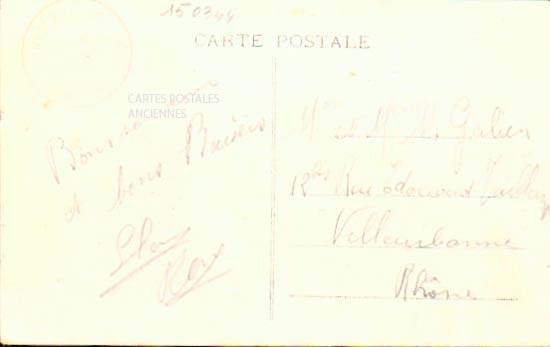 150344
CARTE POSTALE
CARTES POSTALES
ANCIENNES
Bonne
et bons Baisers
Mr et Mme Galien
12bis Rue Edouard Vaillant
Villeurbanne
Rhône